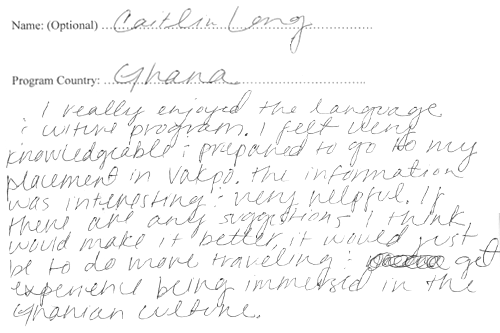 Name: (Optional) Caitlin Long
Program Country: Ghana
I really enjoyed the language
: culture program. I felt very
knowledgeable : prepared to go to my
placement in Vakpo. the information
was interesting : very helpful. If
there are any suggestions I think
would make it better, it would just
be to do more traveling : get
experience being immersed in the
Ghanian culture.